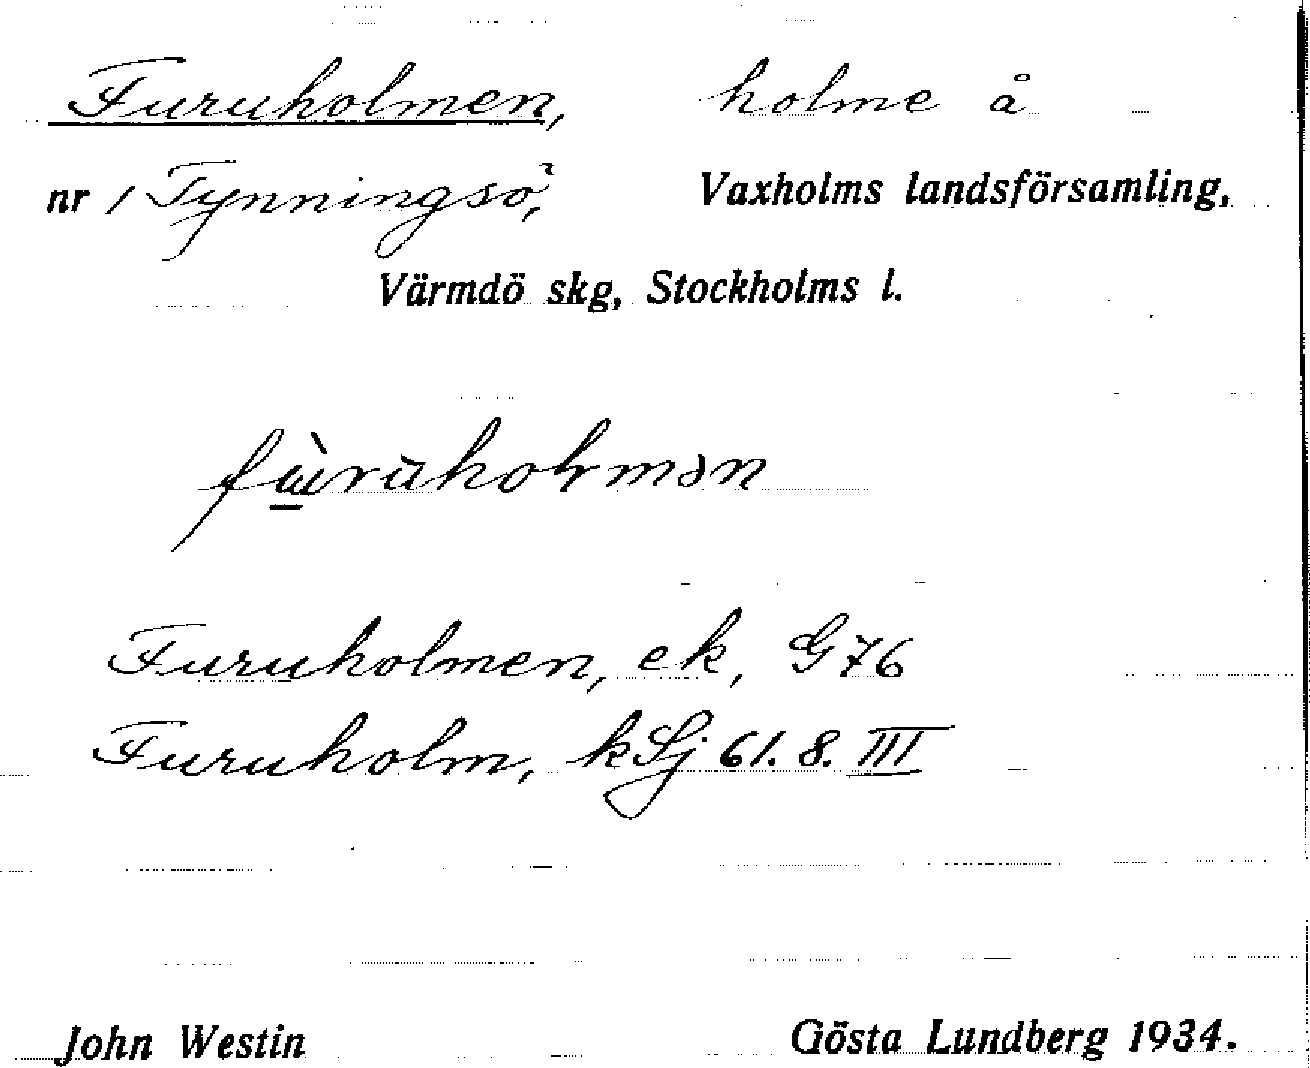 Furuholmen, holme å
nr 1 Tynningsö, Vaxholms landsförsamling,
Värmdö skg, Stockholms l.
Furuholmen, ek, G76
Furuholm, kSj 61. 8. III
John Westin Gösta Lundberg 1934.